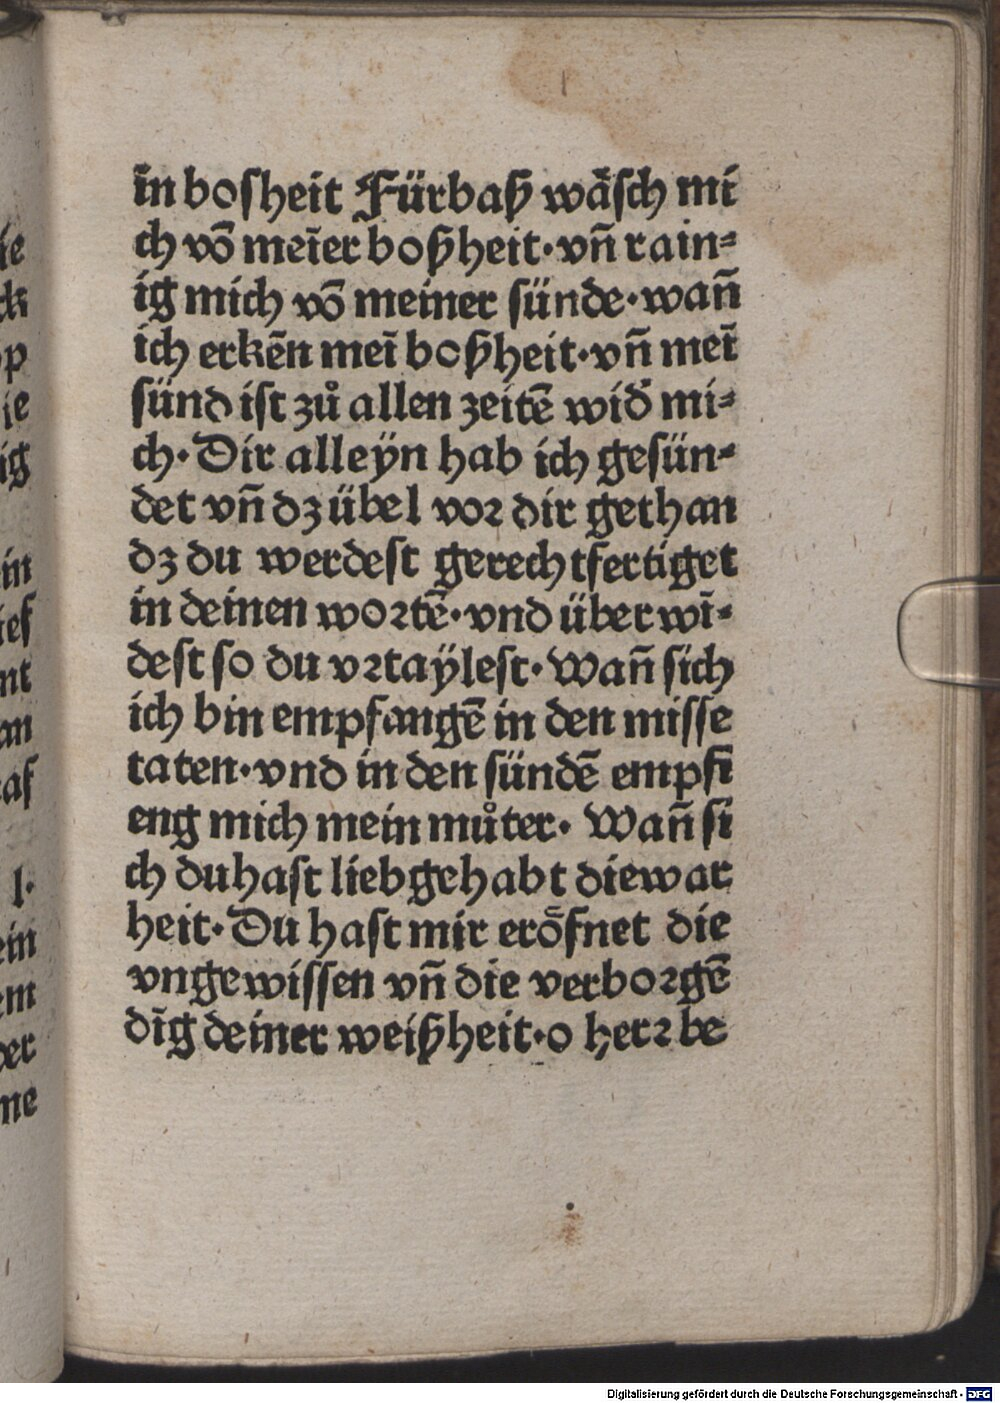 in bosheit Fürbaß wäsch mi
ch võ meĩer boßheit·vñ rain⸗
ig mich võ meiner sünde·wañ
ich erkẽn meĩ boßheit·vñ meĩ
sünd ist zů allen zeitẽ wid̛ mi⸗
ch·Dir alleÿn hab ich gesün⸗
det vñ dz übel vor dir gethan
dz du werdest gerechtfertiget
in deinen wortẽ·vnd über wĩ⸗
dest so du vrtaÿlest·Wañ sich
ich bin empfangẽ in den misse
taten·vnd in den sündẽ empfi
eng mich mein můter· Wañ si
ch du hast lieb gehabt die war
heit·Du hast mir eröfnet die
vngewissen vñ die verborgẽ
dĩg deiner weißheit·o herr be
Digitalisierung gefördert durch die Deutsche Forschungsgemeinschaft - DFG